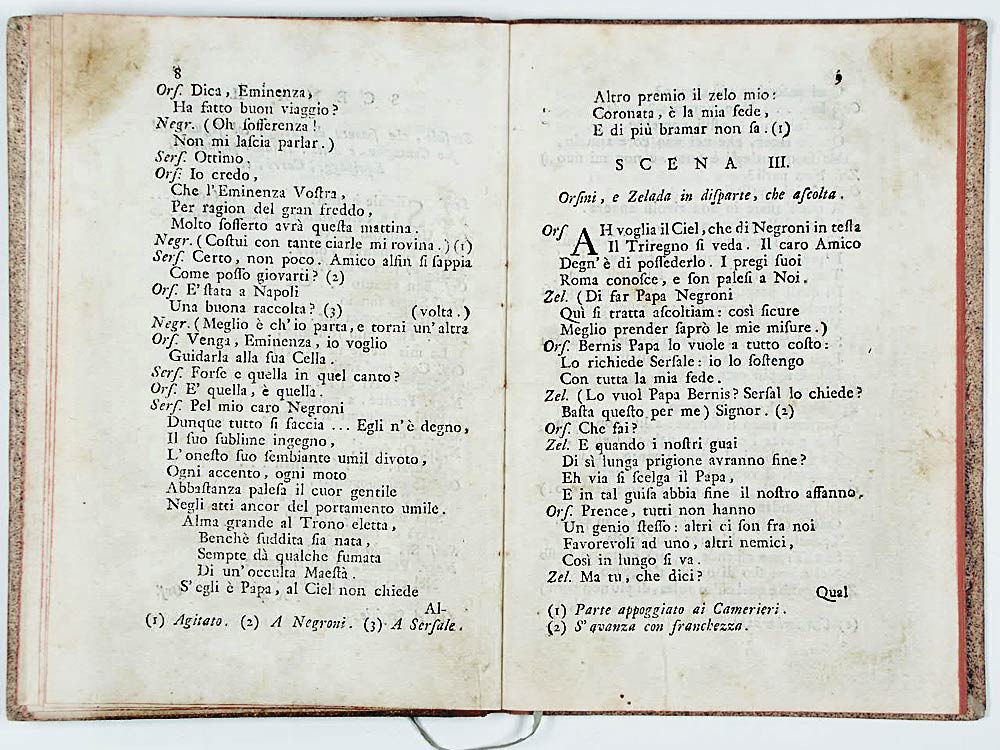 8
Orſ. Dica, Eminenza,
Ha fatto buon viaggio?
Negr. (Oh ſofferenza!
Non mi laſcia parlar.)
Serſ. Ottimo.
Orſ. Io credo,
Che l'Eminenza Voſtra,
Per ragion del gran freddo,
Molto ſofferto avrà queſta mattina.
Negr. (Coſtui con tante ciarle mi rovina.) (1)
Serſ. Certo, non poco. Amico alfin ſi ſappia
Come poſſo giovarti? (2)
Orſ. E' ſtata a Napoli
Una buona raccolta? (3) (volta.)
Negr. (Meglio è ch'io parta, e torni un'altra
Orſ. Venga, Eminenza, io voglio
Guidarla alla ſua Cella.
Serſ. Forſe e quella in quel canto?
Orſ. E' quella, è quella.
Serſ. Pel mio caro Negroni
Dunque tutto ſi faccia ... Egli n'è degno,
Il ſuo ſublime ingegno,
L'oneſto ſuo ſembiante umil divoto,
Ogni accento, ogni moto
Abbaſtanza paleſa il cuor gentile
Negli atti ancor del portamento umile.
Alma grande al Trono eletta,
Benchè ſuddita ſia nata,
Sempte dà qualche fumata
Di un'occulta Maeſtà.
S'egli è Papa, al Ciel non chiede
Al-
(1) Agitato. (2) A Negroni. (3) A Serſale.
9
Altro premio il zelo mio:
Coronata, è la mia fede,
E di più bramar non ſa. (1)
SCENA III.
Orſini, e Zelada in diſparte, che aſcolta.
Orſ AH voglia il Ciel, che di Negroni in teſta
Il Triregno ſi veda. Il caro Amico
Degn'è di poſſederlo. I pregi ſuoi
Roma conoſce, e ſon paleſi a Noi.
Zel. (Di far Papa Negroni
Quì ſi tratta aſcoltiam: così ſicure
Meglio prender ſaprò le mie miſure.)
Orſ. Bernis Papa lo vuole a tutto coſto:
Lo richiede Serſale: io lo ſoſtengo
Con tutta la mia fede.
Zel. (Lo vuol Papa Bernis? Serſal lo chiede?
Baſta queſto per me) Signor. (2)
Orſ. Che fai?
Zel. E quando i noſtri guai
Di sì lunga prigione avranno fine?
Eh via ſi ſcelga il Papa,
E in tal guiſa abbia fine il noſtro affanno.
Orſ. Prence, tutti non hanno
Un genio ſteſſo: altri ci ſon fra noi
Favorevoli ad uno, altri nemici,
Così in lungo ſi va.
Zel. Ma tu, che dici?
Qual
(1) Parte appoggiato ai Camerieri.
(2) S'avanza con franchezza.